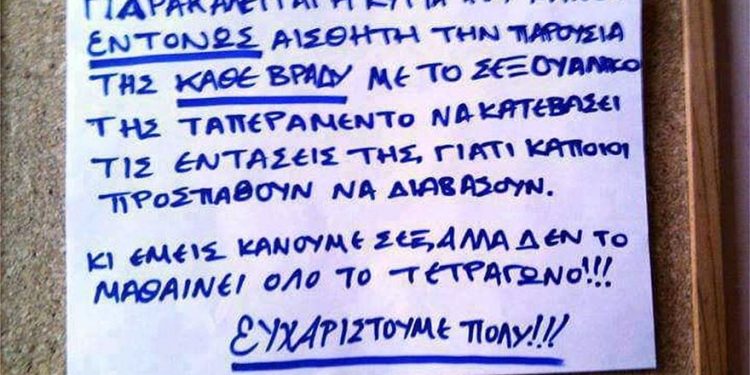 ΠΑΡΑΚΑΛΕΙΤΑΙ Η ΚΥΡΙΑ ΠΟΥ
ΕΝΤΟΝΩΣ ΑΙΣΘΗΤΗ ΤΗΝ ΠΑΡΟΥΣΙΑ
ΤΗΣ ΚΑΘΕ ΒΡΑΔΥ ΜΕ ΤΟ ΣΕΞΟΥΑΛΙΚΟ
ΤΗΣ ΤΑΠΕΡΑΜΕΝΤΟ ΝΑ ΚΑΤΕΒΑΣΕΙ
ΤΙΣ ΕΝΤΑΣΕΙΣ ΤΗΣ, ΓΙΑΤΙ ΚΑΠΟΙΟΙ
ΠΡΟΣΠΑΘΟΥΝ ΝΑ ΔΙΑΒΑΣΟΥΝ.
ΚΙ ΕΜΕΙΣ ΚΑΝΟΥΜΕ ΣΕΞ, ΑΛΛΑ ΔΕΝ ΤΟ
ΜΑΘΑΙΝΕΙ ΟΛΟ ΤΟ ΤΕΤΡΑΓΩΝΟ!!!
ΕΥΧΑΡΙΣΤΟΥΜΕ ΠΟΛΥ!!!